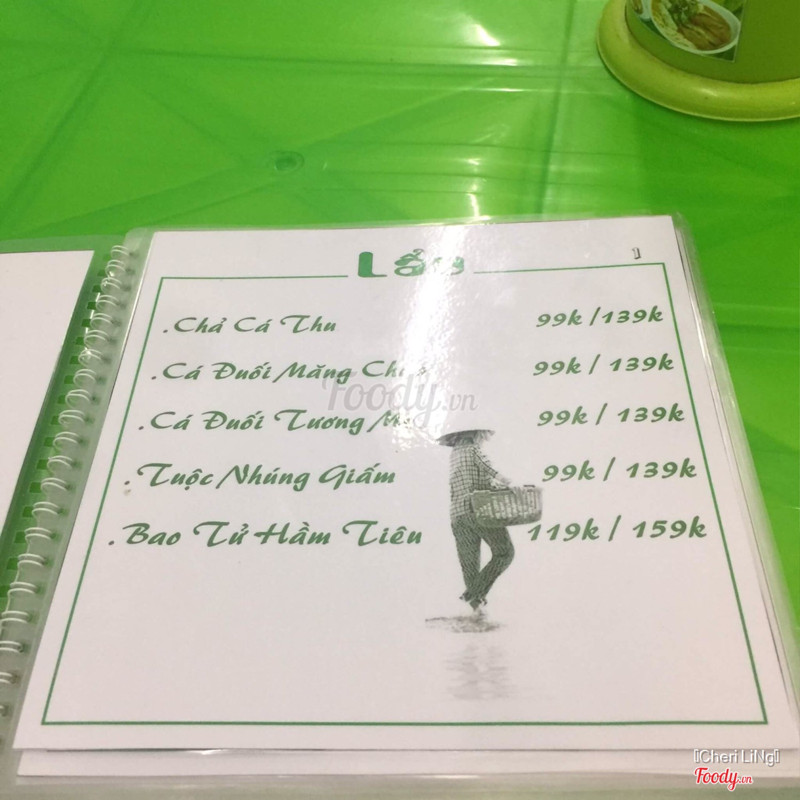 Lẩu
1
. Chả Cá Thu 99k / 139k
. Cá Đuối Măng 99k / 139k
. Cá Đuối Tương 99k / 139k
. Tuộc Nhúng Giấm 99k / 139k
. Bao Tử Hầm Tiêu 119k / 159k
Foody.vn
Cheri LiNg
Foody.vn